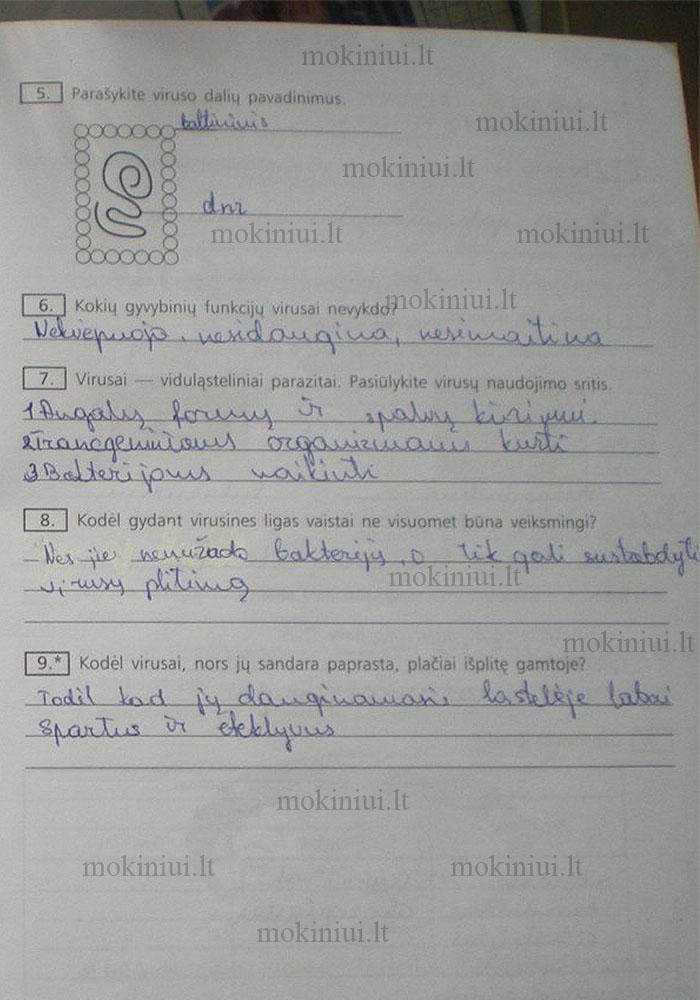 mokiniui.lt
5. Parašykite viruso dalių pavadinimus.
baltininis
mokiniui.lt
mokiniui.lt
dnr
mokiniui.lt mokiniui.lt
mokiniui.lt
6. Kokių gyvybinių funkcijų virusai nevykdo?
Nekvėpuoja, nesidaugina, nesimaitina
7. Virusai — viduląsteliniai parazitai. Pasiūlykite virusų naudojimo sritis.
1 Augalų formų ir spalvų kitimui.
2 Trancgeniniams organizmams kurti
3 Bakterijoms naikinti
8. Kodėl gydant virusines ligas vaistai ne visuomet būna veiksmingi?
Nes jie nenužudo bakterijų, o tik gali sustabdyti
mokiniui.lt
virusų plitimą
mokiniui.lt
9.* Kodėl virusai, nors jų sandara paprasta, plačiai išplitę gamtoje?
Todėl kad jų dauginamasis ląstelėje labai
spartus ir efektyvus
mokiniui.lt
mokiniui.lt mokiniui.lt
mokiniui.lt